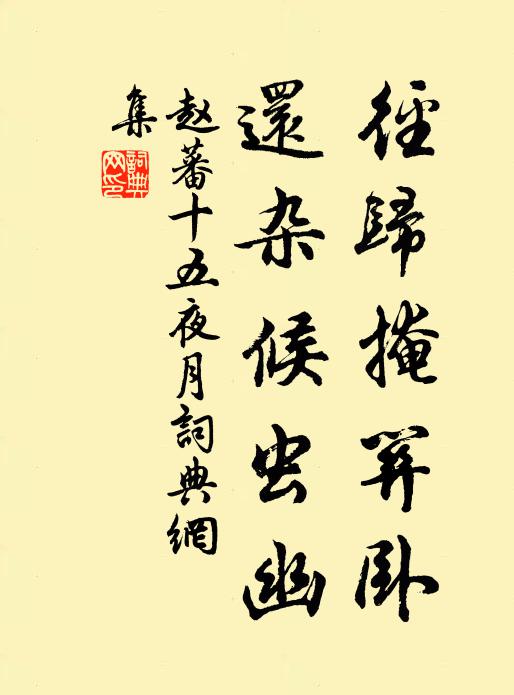 徑歸掩関卧
還杂候虫幽
赵蕃十五夜月詞典網
集
詞典
网印